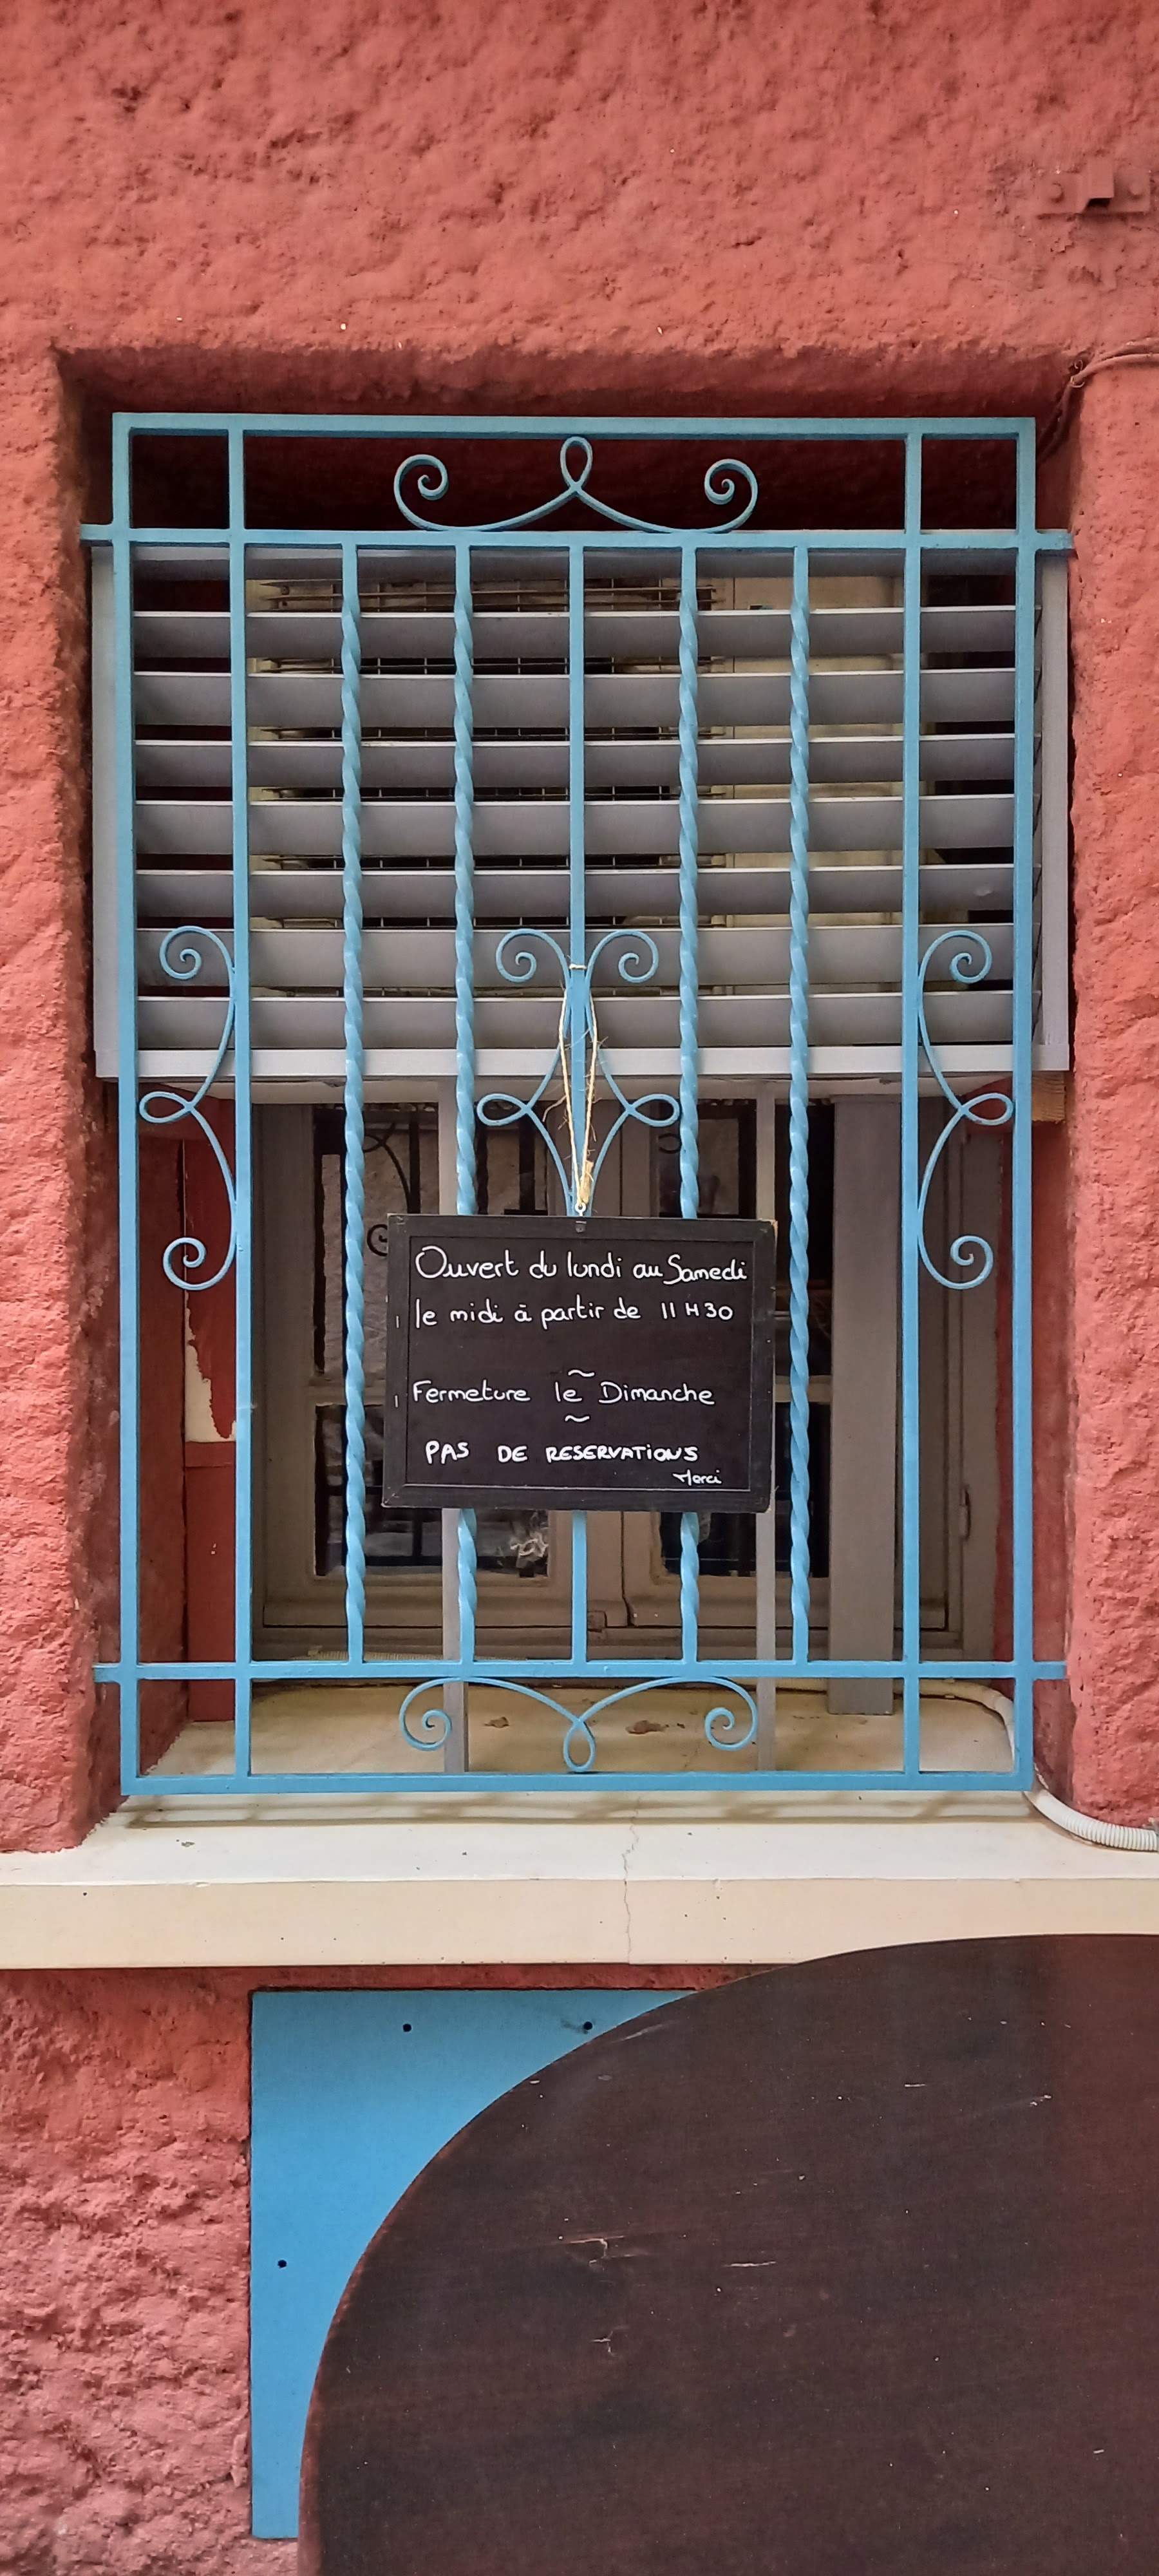 Ouvert du lundi au Samedi
le midi à partir de 11H30
~
Fermeture le Dimanche
~
PAS DE RESERVATIONS
Merci